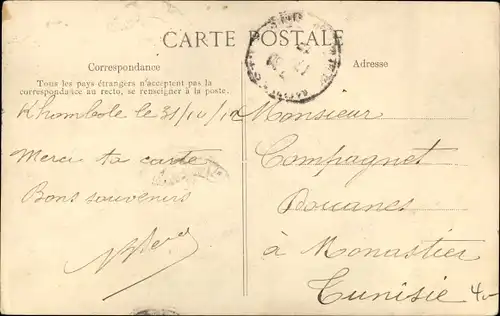 CARTE POSTALE
Correspondance
Tous les pays étrangers n'acceptent pas la
correspondance au recto, se renseigner à la poste.
Khombole le 31/10/10
Merci ta carte
Bons souvenirs
Adresse
Monsieur
Compagnet
Douanes
à Monastier
Tunisie